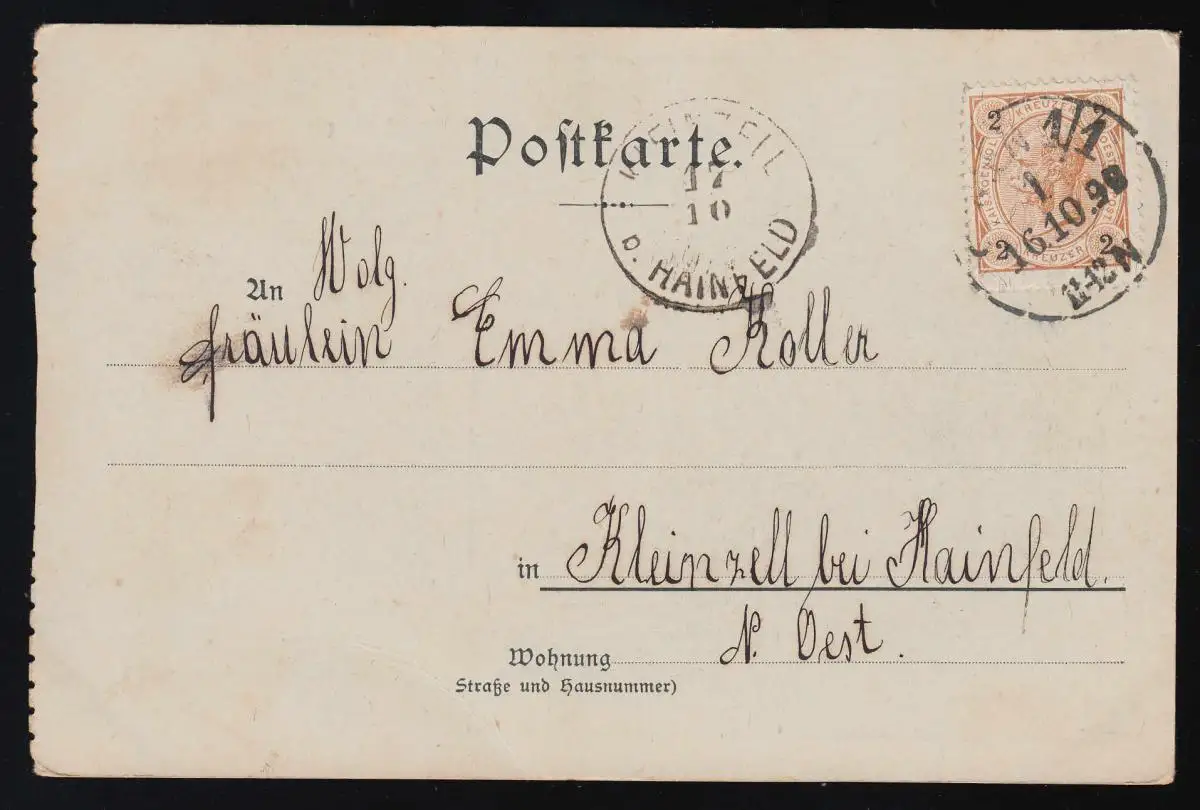 Postkarte.
KLEINZELL
17
10
b. HAINFELD
2
KREUZER
1/1
1
16.10.98
11-12 N
2 KREUZER 2
An Wolg.
Fräulein Emma Koller
in Kleinzell bei Hainfeld.
Wohnung N. Oest.
Straße und Hausnummer)